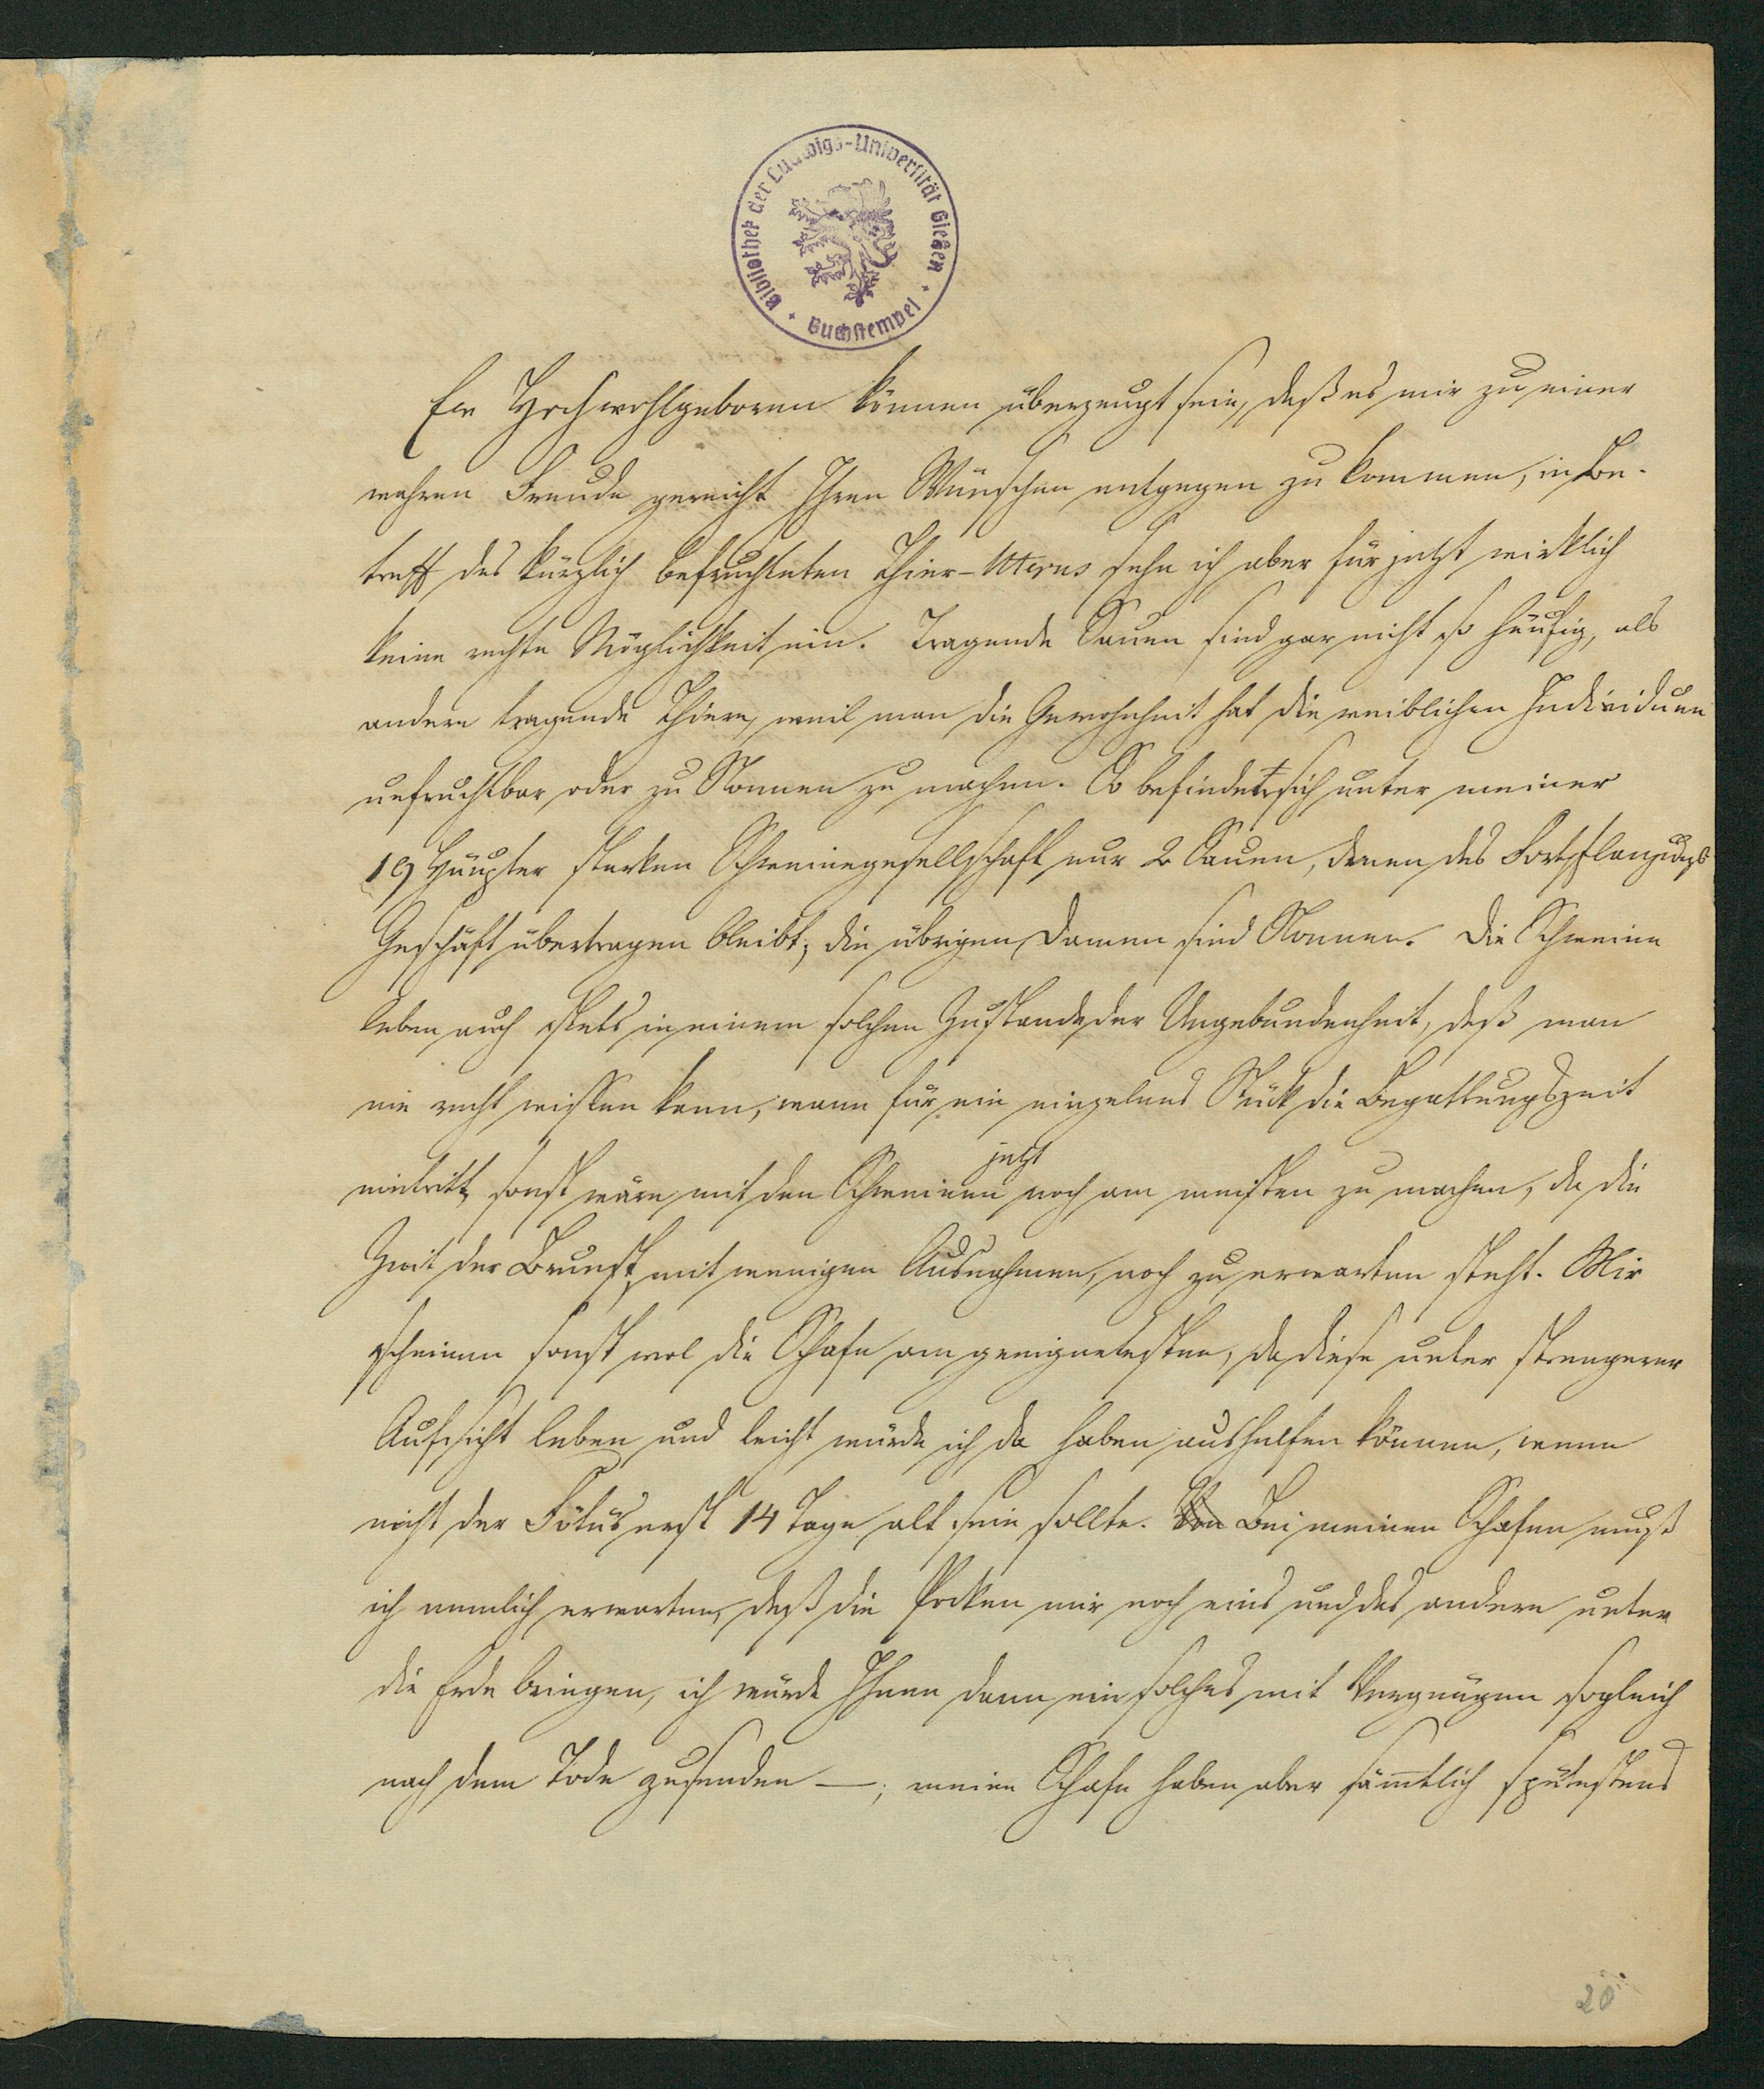 Bibliothek der Ludwigs-Universität Gießen
Buchstempel
Ew Hochwohlgeboren können überzeugt sein, daß es mir zu einer
wahren Freude gereicht Ihren Wünschen entgegen zu kommen, in Be-
treff des kürzlich befruchteten Thier-Uterus sehe ich aber für jetzt wirklich
keine rechte Möglichkeit ein. Tragende Sauen sind gar nicht so häufig, als
andere tragende Thiere, weil man die Gewohnheit hat die weiblichen Individuen
unfruchtbar oder zu Nonnen zu machen. So befindet sich unter meiner
19 Häupter starken Schweinegesellschaft nur 2 Sauen, denen das Fortpflanzungs
Geschäft übertragen bleibt; die übrigen Damen sind Nonnen. Die Schweine
leben auch stets in einem solchen Zustande der Ungebundenheit, daß man
nie recht wissen kann, wann für ein einzelnes Stück die Begattungszeit
jetzt
eintritt, sonst wäre mit den Schweinen noch am meisten zu machen, da die
Zeit der Brunst, mit wenigen Ausnahmen, noch zu erwarten steht. Mir
scheinen sonst wol die Schafe am geeignetesten, da diese unter strengerer
Aufsicht leben und leicht würde ich da haben aushelfen können, wenn
nicht der Fötus erst 14 Tage alt sein sollte. Von Bei meinen Schafen muß
ich nemlich erwarten, daß die Pocken mir noch eins und das andere unter
die Erde bringen, ich würde Ihnen dann ein solches mit Vergnügen sogleich
nach dem Tode zusenden —; meine Schafe haben aber sämtlich spätestens
20